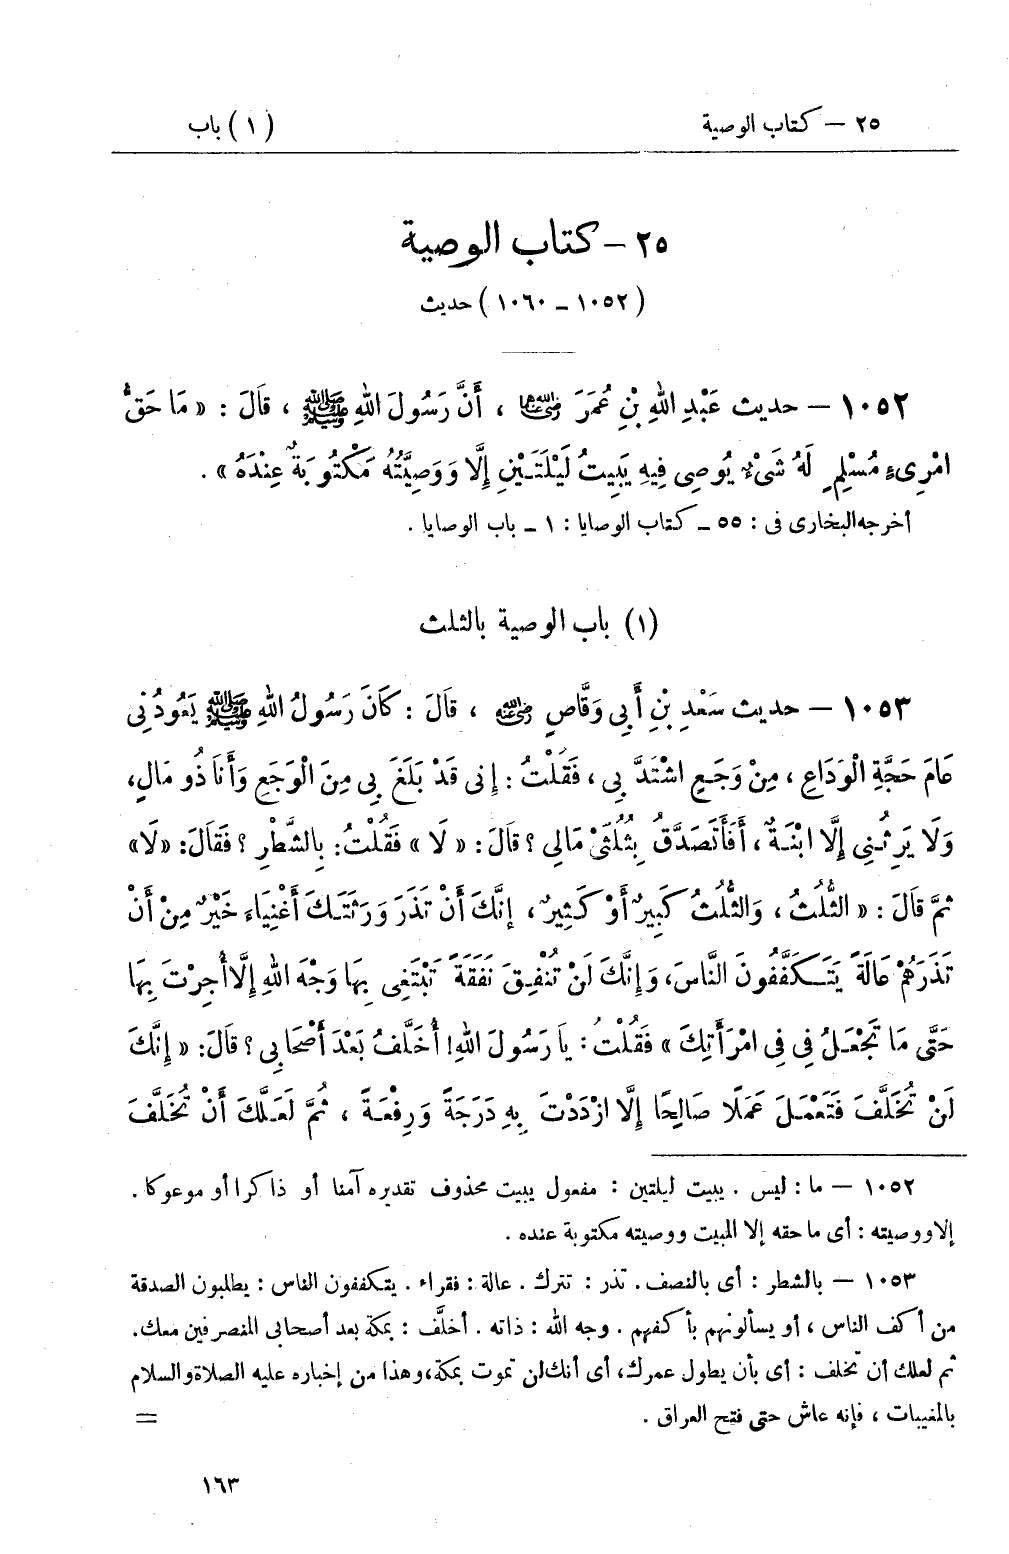 ٢٥ – كتاب الوصية (١) باب
٢٥ – كتاب الوصية
(١٠٥٢ – ١٠٦٠) حديث
١٠٥٢ – حديث عَبْدِ اللهِ بْنِ عُمَرَ رضي الله عنهما ، أَنَّ رَسُولَ اللهِ ﷺ ، قَالَ : « مَا حَقُّ
امْرِىءٍ مُسْلِمٍ لَهُ شَىْءٌ يُوصِى فِيهِ يَبِيتُ لَيْلَتَيْنِ إِلَّا وَوَصِيَّتُهُ مَكْتُوبَةٌ عِنْدَهُ » .
أخرجه البخارى فى : ٥٥ – كتاب الوصايا : ١ – باب الوصايا .
(١) باب الوصية بالثلث
١٠٥٣ – حديث سَعْدِ بْنِ أَبِى وَقَّاصٍ رضي الله عنه ، قَالَ : كَانَ رَسُولُ اللهِ ﷺ يَعُودُنِى
عَامَ حَجَّةِ الْوَدَاعِ ، مِنْ وَجَعٍ اشْتَدَّ بِى ، فَقُلْتُ : إِنى قَدْ بَلَغَ بِى مِنَ الْوَجَعِ وَأَنَا ذُو مَالٍ،
وَلَا يَرِثُنِى إِلَّا ابْنَةٌ ، أَفَأَتَصَدَّقُ بِثُلُثَىْ مَالِى ؟ قَالَ : « لَا » فَقُلْتُ: بِالشَّطْرِ ؟ فَقَالَ: «لَا»
ثمَّ قَالَ : « الثُّلُثُ ، وَالثُّلُثُ كَبِيرٌ أَوْ كَثِيرٌ ، إِنَّكَ أَنْ تَذَرَ وَرَثَتَكَ أَغْنِيَاءَ خَيْرٌ مِنْ أَنْ
تَذَرَهُمْ عَالَةً يَتَكَفَّفُونَ النَّاسَ، وَإِنَّكَ لَنْ تُنْفِقَ نَفَقَةً تَبْتَغِى بِهَا وَجْهَ اللهِ إِلَّا أُجِرْتَ بِهَا
حَتَّى مَا تَجْعَلُ فِى فِى امْرَأَتِكَ » فَقُلْتُ : يَا رَسُولَ اللهِ! أُخَلَّفُ بَعْدَ أَصْحَابِى ؟ قَالَ: « إِنَّكَ
لَنْ تُخَلَّفَ فَتَعْمَلَ عَمَلًا صَالِحًا إِلَّا ازْدَدْتَ بِهِ دَرَجَةً وَرِفْعَةً ، ثُمَّ لَعَلَّكَ أَنْ تُخَلَّفَ
١٠٥٢ – ما : ليس . يبيت ليلتين : مفعول يبيت محذوف تقديره آمنا أو ذاكرا أو موعوكا .
إلا ووصيته : أى ما حقه إلا المبيت ووصيته مكتوبة عنده .
١٠٥٣ – بالشطر : أى بالنصف . تذر : تترك . عالة : فقراء . يتكففون الناس : يطلبون الصدقة
من أكف الناس ، أو يسألونهم بأكفهم . وجه الله : ذاته . أخلَّف : بمكة بعد أصحابى المنصرفين معك.
ثم لعلك أن تخلف : أى بأن يطول عمرك، أى أنك لن تموت بمكة، وهذا من إخباره عليه الصلاة والسلام
بالمغيبات ، فإنه عاش حتى فتح العراق . =
١٦٣